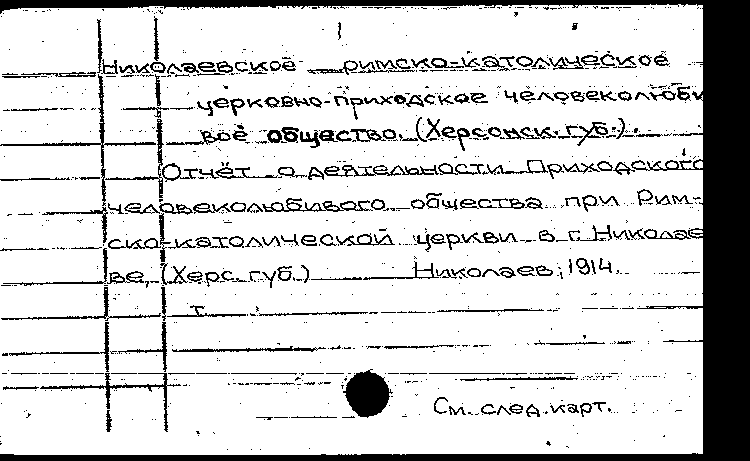 Николаевское римско-католическое
церковно-приходское человеколюби
вое общество. (Херсонск. губ.).
Отчёт о деятельности Приходского
человеколюбивого общества при Рим-
ско-католической церкви в г. Николае
ве, (Херс. губ.) Николаев, 1914.
т
См. след. карт.